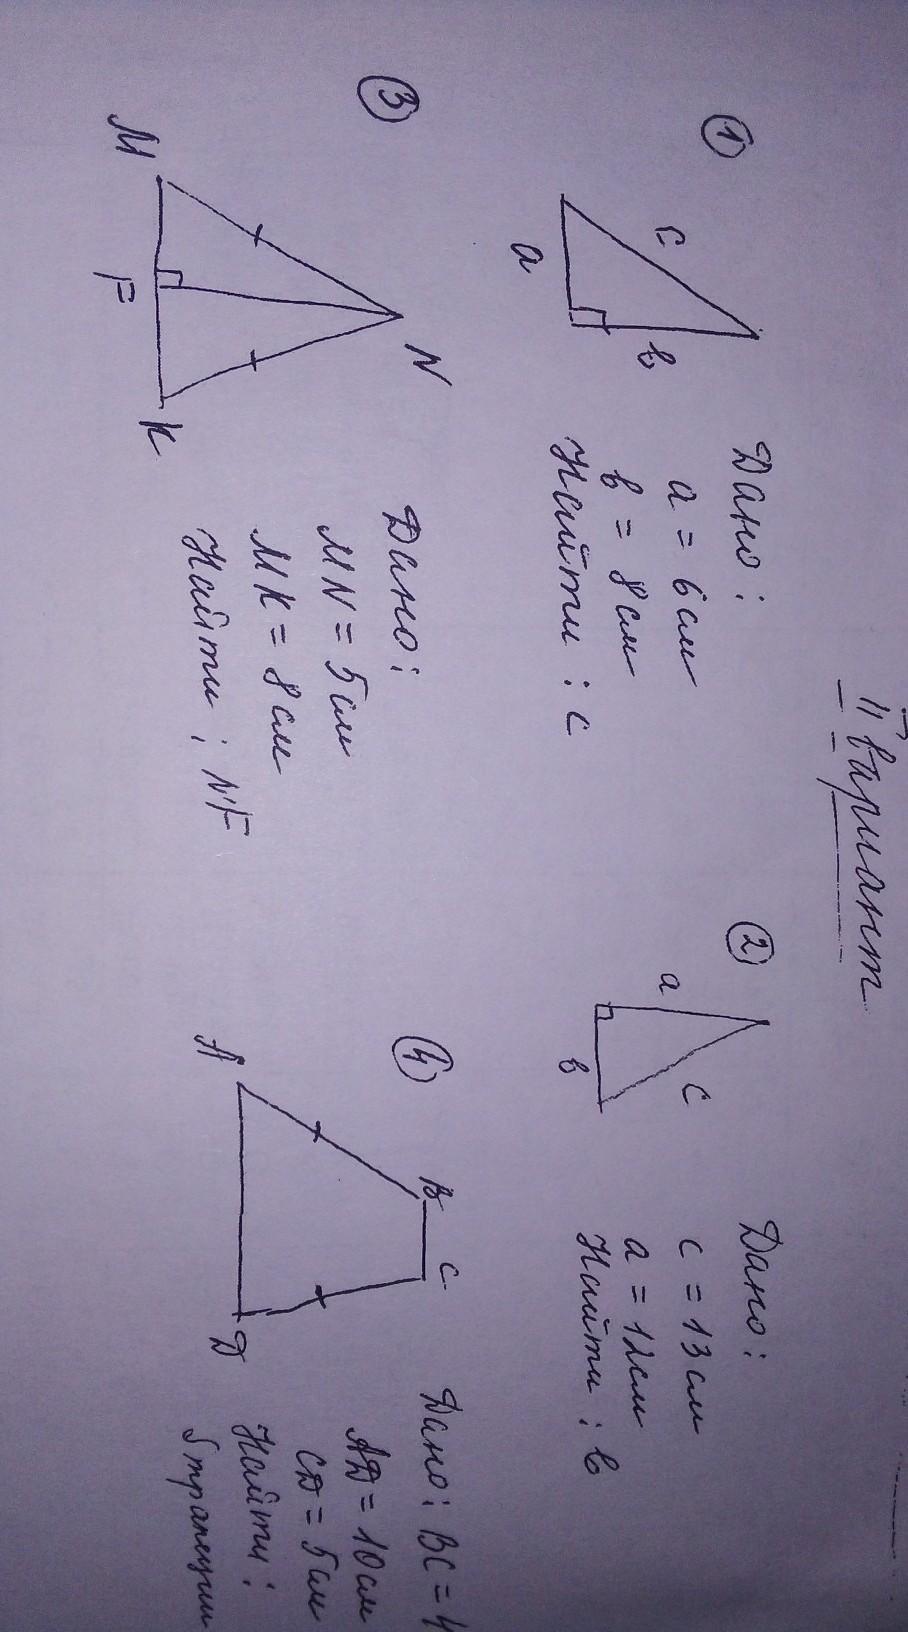 II вариант
①
c
a
в
Дано:
a = 6 см
в = 8 см
Найти: c
②
a
c
в
Дано:
c = 13 см
a = 12 см
Найти: в
③
M
N
F
K
Дано:
MN = 5 см
MK = 8 см
Найти: NF
④
A
B
C
D
Дано: BC = 4
AD = 10 см
CD = 5 см
Найти:
S трапеции